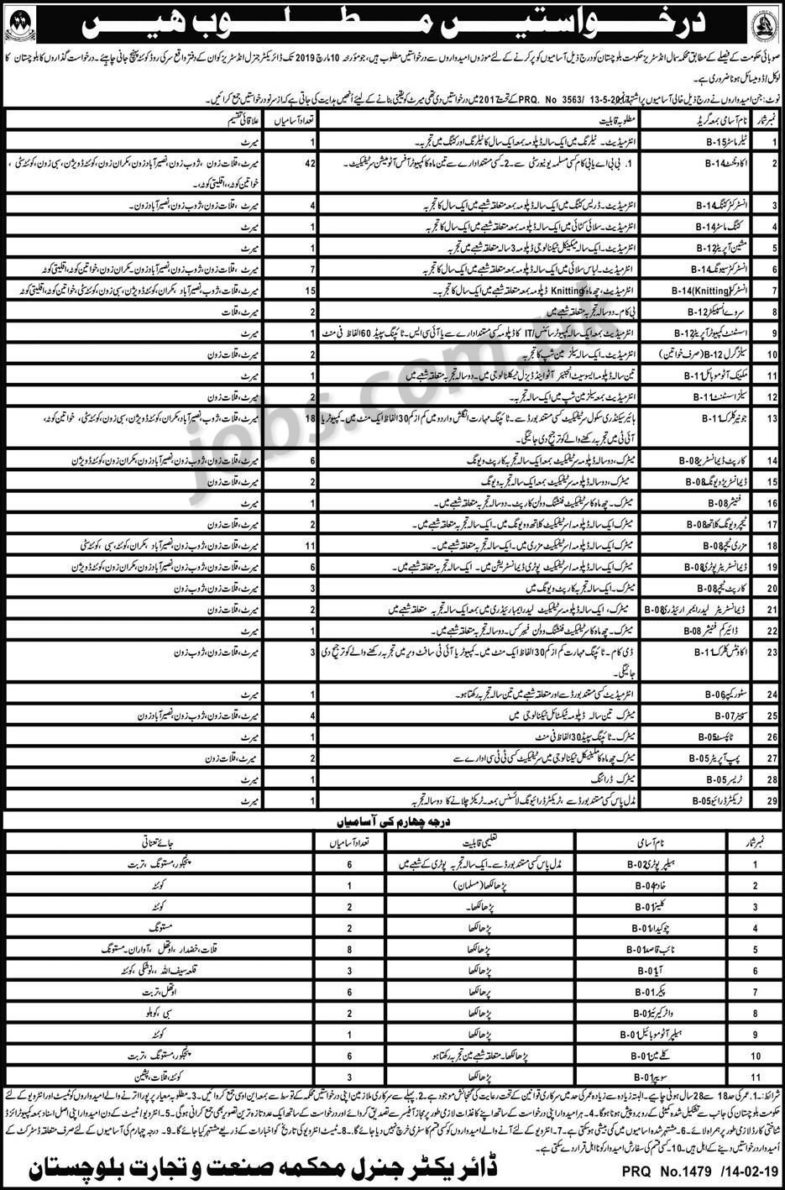 درخواستیں مطلوب ھیں
صوبائی حکومت کے فیصلے کے مطابق محکمہ سمال انڈسٹریز حکومت بلوچستان کو درج ذیل آسامیوں کو پر کرنے کے لئے موزوں امیدواروں سے درخواستیں مطلوب ہیں، جو مورخہ 10 مارچ 2019 تک ڈائریکٹر جنرل انڈسٹریز کو ان کے دفتر واقع سرکی روڈ کوئٹہ پہنچ جانی چاہیئے۔ درخواست گذاروں کا بلوچستان کا
لوکل/ڈومیسائل ہونا ضروری ہے۔
نوٹ: جن امیدواروں نے درج ذیل خالی آسامیوں پر اشتہار نمبر PRQ. No 3563/ 13-5-2017 کے تحت 2017 میں درخواستیں دی تھی میرٹ کو یقینی بنانے کے لیے انھیں ہدایت کی جاتی ہے کہ از سر نو درخواستیں جمع کرائیں۔
نمبر شمار نام آسامی بمعہ گریڈ مطلوبہ قابلیت تعداد آسامیاں علاقائی تقسیم
1 ٹیلر ماسٹر B-15 انٹرمیڈیٹ۔ ٹیلرنگ میں ایک سالہ ڈپلومہ بمعہ ایک سال کا ٹیلرنگ اور کٹنگ میں تجربہ۔ 1 میرٹ
2 اکاؤنٹنٹ B-14 1. بی بی اے یا بی کام کسی مسلمہ یونیورسٹی سے۔ 2۔ کسی مستند ادارے سے تین ماہ کا کمپیوٹر آفس آٹومیشن سرٹیفکیٹ۔ 42 میرٹ، قلات زون، ژوب زون، نصیر آباد زون، مکران زون، کوئٹہ ڈویژن، سبی زون، کوئٹہ سٹی،
خواتین کوٹہ، اقلیتی کوٹہ،
3 انسٹرکٹر کٹنگ B-14 انٹرمیڈیٹ۔ ڈریس کٹنگ میں ایک سالہ ڈپلومہ بمعہ متعلقہ شعبے میں ایک سال کا تجربہ 4 میرٹ، قلات زون، ژوب زون، نصیر آباد زون
4 کٹنگ ماسٹر B-14 انٹرمیڈیٹ۔ سلائی کٹائی میں ایک سالہ ڈپلومہ بمعہ متعلقہ شعبے میں ایک سال کا تجربہ 1 میرٹ
5 مشین آپریٹر B-12 انٹرمیڈیٹ۔ ایک سالہ میکینیکل ٹیکنالوجی ڈپلومہ 3 سالہ متعلقہ شعبے میں تجربہ 1 میرٹ
6 انسٹرکٹر سیونگ B-14 انٹرمیڈیٹ۔ لباس سلائی میں ایک سالہ ڈپلومہ بمعہ متعلقہ شعبے میں ایک سال کا تجربہ 7 میرٹ، قلات زون، ژوب زون، نصیر آباد زون۔ مکران زون، کوئٹہ سٹی، خواتین کوٹہ
7 انسٹرکٹر (Knitting) B-14 انٹرمیڈیٹ، چھ ماہ کا Knitting ڈپلومہ بمعہ متعلقہ شعبے میں ایک سال کا تجربہ۔ 15 میرٹ، قلات زون، ژوب زون، نصیر آباد، مکران زون، کوئٹہ ڈویژن، سبی زون، کوئٹہ سٹی، خواتین کوٹہ، اقلیتی کوٹہ
8 سروے انسپکٹر B-12 بی کام۔ دو سالہ تجربہ متعلقہ شعبے میں 2 میرٹ، قلات
9 اسسٹنٹ کمپیوٹر آپریٹر B-12 انٹرمیڈیٹ بمعہ ایک سالہ کمپیوٹر سائنس/IT کا ڈپلومہ کسی مستند ادارے سے یا آئی سی ایس۔ ٹائپنگ سپیڈ 60 الفاظ فی منٹ 1 میرٹ
10 سیلز گرل B-12 (صرف خواتین) انٹرمیڈیٹ۔ ایک سالہ سیلز مین شپ کا تجربہ 2 میرٹ، قلات زون
11 مکینک آٹوموبائل B-11 تین سالہ ڈپلومہ ایسوسیٹ انجینئر آٹو اینڈ ڈیزل ٹیکنالوجی میں۔ دو سالہ تجربہ متعلقہ شعبے میں 1 میرٹ
12 سیلز اسسٹنٹ B-11 انٹرمیڈیٹ بمعہ سیلز مین شپ میں ایک سالہ تجربہ 2 میرٹ، قلات زون
13 جونیئر کلرک B-11 ہائیر سیکنڈری سکول سرٹیفکیٹ کسی مستند بورڈ سے۔ ٹائپنگ مہارت انگلش و اردو میں کم از کم 30 الفاظ ایک منٹ میں۔ کمپیوٹر یا 18 میرٹ، قلات زون، ژوب زون، نصیر آباد، مکران زون، کوئٹہ ڈویژن، سبی زون، کوئٹہ سٹی، خواتین کوٹہ،
آئی ٹی میں تجربہ رکھنے والے کو ترجیح دی جائیگی۔ اقلیتی کوٹہ
14 کارپٹ ڈیمانسٹریٹر B-08 میٹرک، دو سالہ ڈپلومہ سرٹیفکیٹ بمعہ ایک سالہ تجربہ کارپٹ ویونگ 6 میرٹ، قلات زون، ژوب زون، نصیر آباد زون، مکران زون، کوئٹہ ڈویژن
15 ڈیمانسٹریٹر ویونگ B-08 میٹرک، دو سالہ ڈپلومہ/سرٹیفکیٹ بمعہ ایک سالہ تجربہ ویونگ 2 میرٹ، قلات زون
16 فنشر B-08 میٹرک۔ چھ ماہ کا سرٹیفکیٹ فنشنگ وولن کارپٹ۔ دو سالہ تجربہ متعلقہ شعبے میں۔ 1 میرٹ
17 ٹیچر ویونگ کلاتھ B-08 میٹرک ایک سالہ ڈپلومہ/سرٹیفکیٹ کلاتھ ویونگ میں۔ ایک سالہ تجربہ متعلقہ شعبے میں۔ 2 میرٹ، قلات زون
18 مزری ٹیچر B-08 میٹرک ایک سالہ ڈپلومہ/سرٹیفکیٹ مزری میں۔ ایک سالہ تجربہ متعلقہ شعبے میں 11 میرٹ، قلات زون، ژوب زون، نصیر آباد، مکران، کوئٹہ، سبی، کوئٹہ سٹی
19 ڈیمانسٹریٹر پوٹری B-08 میٹرک۔ ایک سالہ ڈپلومہ/سرٹیفکیٹ پوٹری ڈیمانسٹریشن میں۔ ایک سالہ تجربہ متعلقہ شعبے میں 6 میرٹ، قلات زون، ژوب زون، نصیر آباد زون، مکران زون، کوئٹہ ڈویژن
20 کارپٹ ٹیچر B-08 میٹرک۔ ایک سالہ تجربہ کارپٹ ویونگ میں 3 میرٹ، قلات زون، ژوب زون
21 ڈیمانسٹریٹر لیدر ایمبرائیڈری B-08 میٹرک، ایک سالہ ڈپلومہ/سرٹیفکیٹ لیدر ایمبرائیڈری میں بمعہ ایک سالہ تجربہ متعلقہ شعبے میں 2 میرٹ، قلات زون
22 ڈائیر کم فنشر B-08 میٹرک۔ چھ ماہ کا سرٹیفکیٹ فنشنگ وولن فیبرکس۔ دو سالہ تجربہ متعلقہ شعبے میں۔ 1 میرٹ
23 اکاؤنٹس کلرک B-11 ڈی کام۔ ٹائپنگ مہارت کم از کم 30 الفاظ ایک منٹ میں۔ کمپیوٹر یا آئی ٹی سافٹ ویئر میں تجربہ رکھنے والے کو ترجیح دی 3 میرٹ، قلات زون، ژوب زون
جائیگی۔
24 سٹور کیپر B-06 انٹرمیڈیٹ کسی مستند بورڈ سے اور متعلقہ شعبے میں تین سالہ تجربہ رکھتا ہو۔ 1 میرٹ
25 سپنر B-07 میٹرک تین سالہ ڈپلومہ ٹیکسٹائل ٹیکنالوجی میں 4 میرٹ، قلات زون، ژوب زون، نصیر آباد زون
26 ٹائپسٹ B-05 میٹرک۔ ٹائپنگ سپیڈ 30 الفاظ فی منٹ 1 میرٹ
27 پمپ آپریٹر B-05 میٹرک چھ ماہ کا مکینیکل ٹیکنالوجی میں سرٹیفکیٹ کسی ٹی ٹی سی ادارے سے 2 میرٹ، قلات زون
28 ٹریسر B-05 میٹرک ڈرائنگ 1 میرٹ
29 ٹریکٹر ڈرائیور B-05 مڈل پاس کسی مستند بورڈ سے، ٹریکٹر ڈرائیونگ لائسنس بمعہ۔ ٹریکٹر چلانے کا دو سالہ تجربہ 1 میرٹ
درجہ چہارم کی آسامیاں
نمبر شمار نام آسامی تعلیمی قابلیت تعداد آسامیاں جائے تعیناتی
1 ہیلپر پوٹری B-02 مڈل پاس کسی مستند بورڈ سے۔ ایک سالہ تجربہ پوٹری کے شعبے میں 6 پنجگور، مستونگ، تربت
2 خادم B-04 پڑھا لکھا (مسلمان) 1 کوئٹہ
3 کلینر B-01 پڑھا لکھا۔ 2 کوئٹہ
4 چوکیدار B-01 پڑھا لکھا 2 مستونگ
5 نائب قاصد B-01 پڑھا لکھا 8 قلات، خضدار، اوتھل، آواران۔ مستونگ
6 آیا B-01 پڑھا لکھا 3 قلعہ سیف اللہ، نوشکی، کوئٹہ
7 پیکر B-01 پڑھا لکھا 6 اوتھل، تربت
8 واٹر کیریئر B-01 پڑھا لکھا 2 سبی، کوہلو
9 ہیلپر آٹوموبائیل B-01 پڑھا لکھا 1 کوئٹہ
10 کلے مین B-01 پڑھا لکھا۔ متعلقہ شعبے میں تجربہ رکھتا ہو 6 پنجگور، مستونگ، تربت
11 سویپر B-01 پڑھا لکھا 3 کوئٹہ، قلات، پشین
شرائط: 1۔ عمر کی حد 18 سے 28 سال ہونی چاہیے۔ البتہ زیادہ سے زیادہ عمر کی حد میں سرکاری قوانین کے تحت رعایت کی گنجائش موجود ہے۔ 2۔ پہلے سے سرکاری ملازمین اپنی درخواستیں محکمہ کے توسط سے بمعہ این او سی جمع کروائیں۔ 3۔ مطلوبہ معیار پر پورا اترنے والے امیدواروں کو ٹیسٹ اور انٹرویو کے لئے
حکومت بلوچستان کی جانب سے تشکیل شدہ کمیٹی کے روبرو پیش ہونا ہوگا۔ 4۔ ہر امیدوار اپنی درخواست کے ساتھ اپنے کاغذات لازمی طور پر مجاز آفیسر سے تصدیق کروائے اور درخواست کے ساتھ ایک عدد تازہ ترین تصویر بھی جمع کرانی ہوگی۔ 5۔ انٹرویو/ٹیسٹ کے دن امیدوار اپنی اصل اسناد بمعہ کمپیوٹرائزڈ
شناختی کارڈ لازمی طور پر ہمراہ لائے۔ 6۔ مشتہر شدہ اسامیوں میں کمی بیشی ہو سکتی ہے۔ 7۔ انٹرویو کے لئے آنے والے امیدواروں کو کسی قسم کا سفری خرچ نہیں دیا جائے گا۔ 8۔ ٹیسٹ انٹرویو کی تاریخ کو اخبارات کے ذریعے مشتہر کیا جائے گا۔ 9۔ درجہ چہارم کی آسامیوں کے لئے صرف متعلقہ ڈسٹرکٹ کے
امیدوار درخواستیں دینے کے اہل ہیں۔ 10۔ کسی قسم کی سفارش امیدوار کو نااہل قرار دے سکتی ہے۔
ڈائریکٹر جنرل محکمہ صنعت و تجارت بلوچستان
PRQ No.1479 /14-02-19
jobs.com.pk